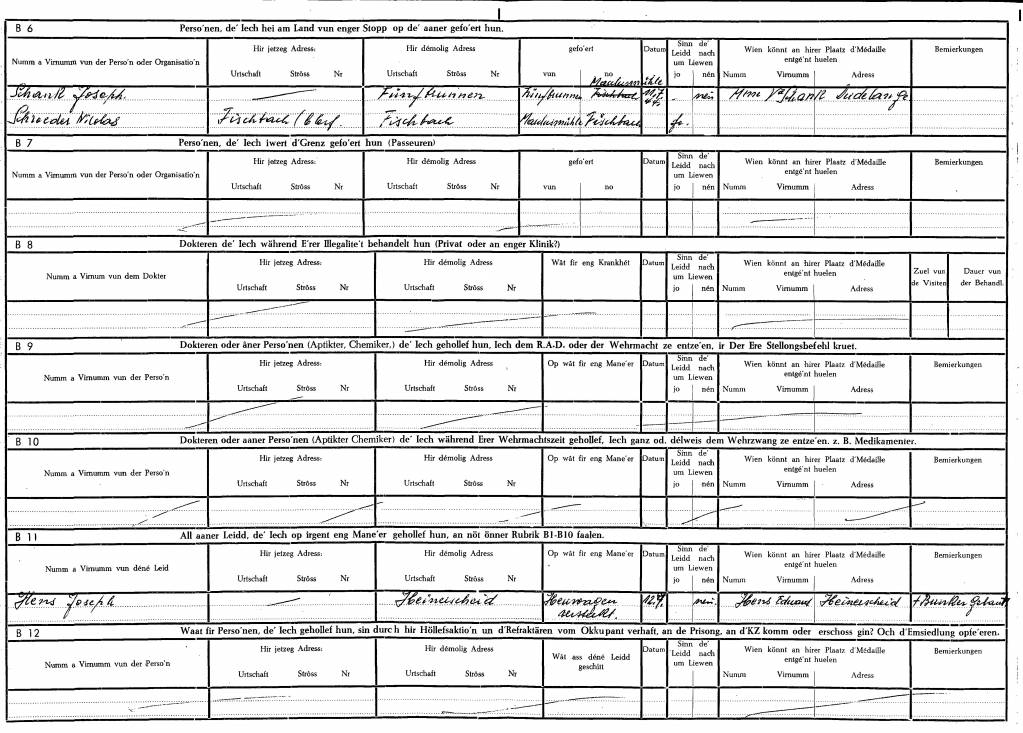 B 6 Perso'nen, de' Iech hei am Land vun enger Stopp op de' aaner gefo'ert hun.
Numm a Virnumm vun der Perso'n oder Organisatio'n Hir jetzeg Adress: Hir démolig Adress gefo'ert Datum Sinn de' Leidd nach um Liewen Wien könnt an hirer Plaatz d'Médaille entgé'nt huelen Bemierkungen
Urtschaft Ströss Nr Urtschaft Ströss Nr vun no jo nén Numm Virnumm Adress
Maulusmühle
Schank Joseph. Fünfbrunnen Fünfbrunnen Fischbach nein Mme Schank
Schroeder Nicolas Fischbach / Clerf. Fischbach Maulusmühle Fischbach jo.
B 7 Perso'nen, de' Iech iwert d'Grenz gefo'ert hun (Passeuren)
Numm a Virnumm vun der Perso'n oder Organisatio'n Hir jetzeg Adress: Hir démolig Adress gefo'ert Datum Sinn de' Leidd nach um Liewen Wien könnt an hirer Plaatz d'Médaille entgé'nt huelen Bemierkungen
Urtschaft Ströss Nr Urtschaft Ströss Nr vun no jo nén Numm Virnumm Adress
B 8 Dokteren de' Iech während E'rer Illegalite't behandelt hun (Privat oder an enger Klinik?)
Numm a Virnum vun dem Dokter Hir jetzeg Adress: Hir démolig Adress Wåt fir eng Krankhét Datum Sinn de' Leidd nach um Liewen Wien könnt an hirer Plaatz d'Médaille entgé'nt huelen Zuel vun de Visiten Dauer vun der Behandl.
Urtschaft Ströss Nr Urtschaft Ströss Nr jo nén Numm Virnumm Adress
B 9 Dokteren oder åner Perso'nen (Aptikter, Chemiker,) de' Iech gehollef hun, Iech dem R.A.D. oder der Wehrmacht ze entze'en, ir Der Ere Stellongsbefehl kruet.
Numm a Virnumm vun der Perso'n Hir jetzeg Adress: Hir démolig Adress Op wåt fir eng Mane'er Datum Sinn de' Leidd nach um Liewen Wien könnt an hirer Plaatz d'Médaille entgé'nt huelen Bemierkungen
Urtschaft Ströss Nr Urtschaft Ströss Nr jo nén Numm Virnumm Adress
B 10 Dokteren oder aaner Perso'nen (Aptikter Chemiker) de' Iech während Erer Wehrmachtszeit gehollef, Iech ganz od. délweis dem Wehrzwang ze entze'en. z. B. Medikamenter.
Numm a Virnumm vun der Perso'n Hir jetzeg Adress: Hir démolig Adress Op wåt fir eng Mane'er Datum Sinn de' Leidd nach um Liewen Wien könnt an hirer Plaatz d'Médaille entgé'nt huelen Bemierkungen
Urtschaft Ströss Nr Urtschaft Ströss Nr jo nén Numm Virnumm Adress
B 11 All aaner Leidd, de' Iech op irgent eng Mane'er gehollef hun, an nöt önner Rubrik B1-B10 faalen.
Numm a Virnumm vun déné Leid Hir jetzeg Adress: Hir démolig Adress Op wåt fir eng Mane'er Datum Sinn de' Leidd nach um Liewen Wien könnt an hirer Plaatz d'Médaille entgé'nt huelen Bemierkungen
Urtschaft Ströss Nr Urtschaft Ströss Nr jo nén Numm Virnumm Adress
Hens Joseph Heinerscheid Heuwagen nein. Hens Eduard Heinerscheid + Bunker Gebaut
versteckt.
B 12 Waat fir Perso'nen, de' Iech gehollef hun, sin durch hir Höllefsaktio'n un d'Refraktären vom Okkupant verhaft, an de Prisong, an d'KZ komm oder erschoss gin? Och d'Emsiedlung opfe'eren.
Numm a Virnumm vun der Perso'n Hir jetzeg Adress: Hir démolig Adress Wåt ass déné Leidd geschitt Datum Sinn de' Leidd nach um Liewen Wien könnt an hirer Plaatz d'Médaille entgé'nt huelen Bemierkungen
Urtschaft Ströss Nr Urtschaft Ströss Nr Numm Virnumm Adress